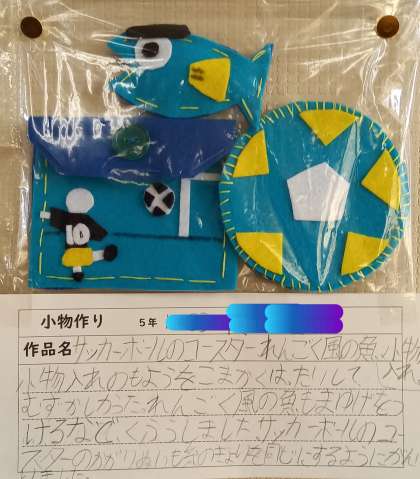 10
小物作り 5年
作品名 サッカーボールのコースター、れんごく風の魚、小物
小物入れのもようをこまかくは、たりして、入れ
むずかしかった。れんごく風の魚もまゆげをつ
けるなど、くふうしました。サッカーボールのコー
スターのかがりぬいも糸の